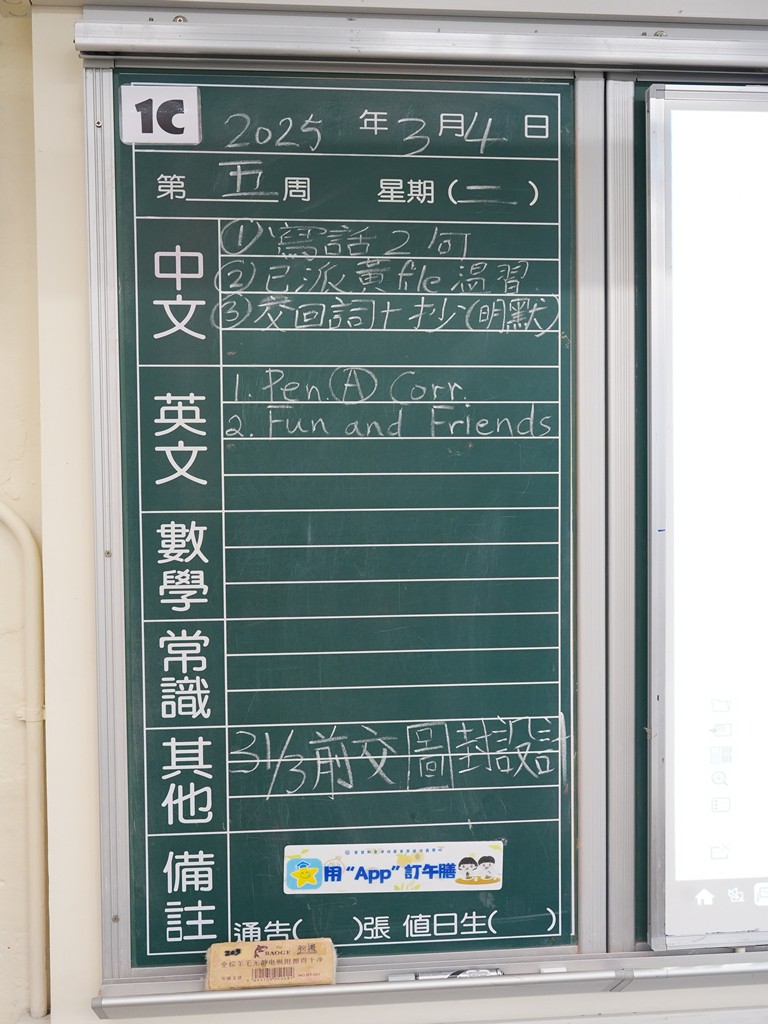 1C 2025 年 3 月 4 日
第 五 周 星期 ( 二 )
中文
① 寫話 2 何
② 已派黃 file 溫習
③ 交回詞十抄 (明默)
英文
1. Pen. Ⓐ Corr.
2. Fun and Friends
數學
常識
其他
31/3 前交 圖 封設計
備註
用 “App” 訂午膳
通告( )張 值日生( )
BAOGE